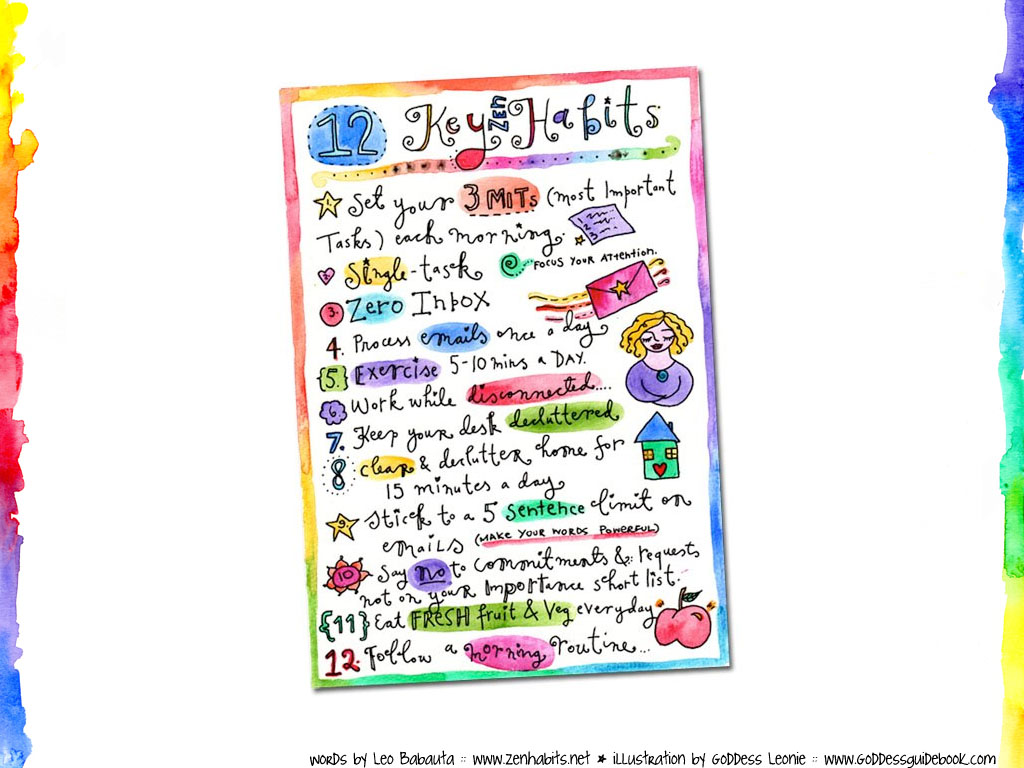 12 Key Zen Habits
1. Set your 3 MITs (most Important
Tasks) each morning.
1.
2.
3.
2 Single-task
FOCUS YOUR ATTENTION.
3. Zero Inbox
4. Process emails once a day
{5.} Exercise 5-10 mins a DAY.
6. Work while disconnected....
7. Keep your desk decluttered
8 clear & declutter home for
15 minutes a day
9. Stick to a 5 sentence limit on
emails (MAKE YOUR WORDS POWERFUL)
10 Say no to commitments & requests
not on your Importance short list.
{11} Eat FRESH fruit & Veg everyday
12. Follow a morning routine...
words by Leo Babauta :: www.zenhabits.net ★ illustration by Goddess Leonie :: www.GODDessguidebook.com